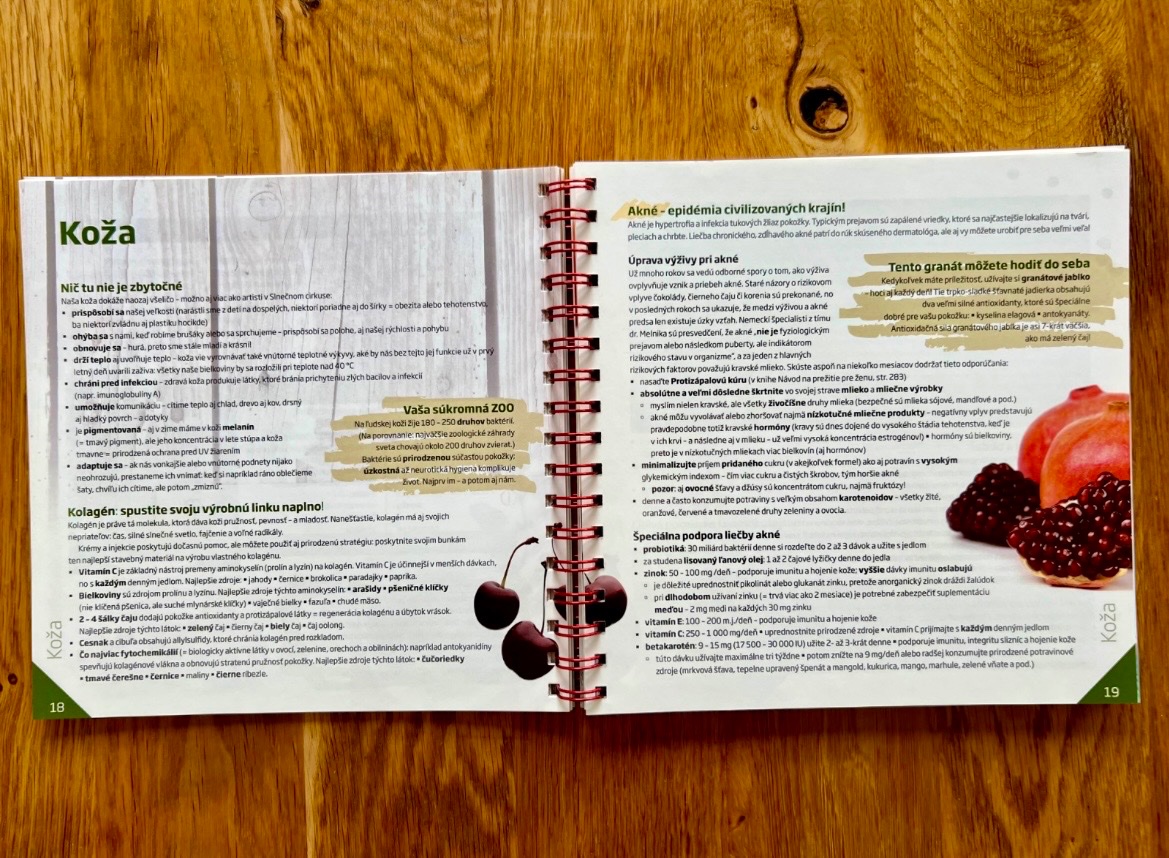 Koža
Nič tu nie je zbytočné
Naša koža dokáže naozaj všeličo – možno aj viac ako artisti v Slnečnom cirkuse:
• prispôsobí sa našej veľkosti (narástli sme z detí na dospelých, niektorí poriadne aj do šírky = obezita alebo tehotenstvo,
ba niektorí zvládnu aj plastiku hocikde)
• ohýba sa s nami, keď robíme brušáky alebo sa sprchujeme – prispôsobí sa polohe, aj našej rýchlosti a pohybu
• obnovuje sa – hurá, preto sme stále mladí a krásni!
• drží teplo aj uvoľňuje teplo – koža vie vyrovnávať také vnútorné teplotné výkyvy, aké by nás bez tejto jej funkcie už v prvý
letný deň uvarili zaživa: všetky naše bielkoviny by sa rozložili pri teplote nad 40 °C
• chráni pred infekciou – zdravá koža produkuje látky, ktoré bránia prichyteniu zlých bacilov a infekcií
(napr. imunoglobulíny A)
• umožňuje komunikáciu – cítime teplo aj chlad, drevo aj kov, drsný
aj hladký povrch – a dotyky
• je pigmentovaná – aj v zime máme v koži melanín
(= tmavý pigment), ale jeho koncentrácia v lete stúpa a koža
tmavne = prirodzená ochrana pred UV žiarením
• adaptuje sa – ak nás vonkajšie alebo vnútorné podnety nijako
neohrozujú, prestaneme ich vnímať: keď si napríklad ráno oblečieme
šaty, chvíľu ich cítime, ale potom „zmiznú“.
Vaša súkromná ZOO
Na ľudskej koži žije 180 – 250 druhov baktérií.
(Na porovnanie: najväčšie zoologické záhrady
sveta chovajú okolo 200 druhov zvierat.)
Baktérie sú prirodzenou súčasťou pokožky:
úzkostná až neurotická hygiena komplikuje
život. Najprv im – a potom aj nám.
Kolagén: spustite svoju výrobnú linku naplno!
Kolagén je práve tá molekula, ktorá dáva koži pružnosť, pevnosť – a mladosť. Nanešťastie, kolagén má aj svojich
nepriateľov: čas, silné slnečné svetlo, fajčenie a voľné radikály.
Krémy a injekcie poskytujú dočasnú pomoc, ale môžete použiť aj prirodzenú stratégiu: poskytnite svojim bunkám
ten najlepší stavebný materiál na výrobu vlastného kolagénu.
• Vitamín C je základný nástroj premeny aminokyselín (prolín a lyzín) na kolagén. Vitamín C je účinnejší v menších dávkach,
no s každým denným jedlom. Najlepšie zdroje: • jahody • černice • brokolica • paradajky • paprika.
• Bielkoviny sú zdrojom prolínu a lyzínu. Najlepšie zdroje týchto aminokyselín: • arašidy • pšeničné klíčky
(nie klíčená pšenica, ale suché mlynárské klíčky) • vaječné bielky • fazuľa • chudé mäso.
• 2 – 4 šálky čaju dodajú pokožke antioxidanty a protizápalové látky = regenerácia kolagénu a úbytok vrások.
Najlepšie zdroje týchto látok: • zelený čaj • čierny čaj • biely čaj • čaj oolong.
• Cesnak a cibuľa obsahujú allylsulfidy, ktoré chránia kolagén pred rozkladom.
• Čo najviac fytochemikálií (= biologicky aktívne látky v ovocí, zelenine, orechoch a obilninách): napríklad antokyanidíny
spevňujú kolagénové vlákna a obnovujú stratenú pružnosť pokožky. Najlepšie zdroje týchto látok: • čučoriedky
• tmavé čerešne • černice • maliny • čierne ríbezle.
Koža
18
Akné – epidémia civilizovaných krajín!
Akné je hypertrofia a infekcia tukových žliaz pokožky. Typickým prejavom sú zapálené vriedky, ktoré sa najčastejšie lokalizujú na tvári,
pleciach a chrbte. Liečba chronického, zdĺhavého akné patrí do rúk skúseného dermatológa, ale aj vy môžete urobiť pre seba veľmi veľa!
Úprava výživy pri akné
Už mnoho rokov sa vedú odborné spory o tom, ako výživa
ovplyvňuje vznik a priebeh akné. Staré názory o rizikovom
vplyve čokolády, čierneho čaju či korenia sú prekonané, no
v posledných rokoch sa ukazuje, že medzi výživou a akné
predsa len existuje úzky vzťah. Nemeckí špecialisti z tímu
dr. Melnika sú presvedčení, že akné „nie je fyziologickým
prejavom alebo následkom puberty, ale indikátorom
rizikového stavu v organizme“, a za jeden z hlavných
rizikových faktorov považujú kravské mlieko. Skúste aspoň na niekoľko mesiacov dodržať tieto odporúčania:
• nasaďte Protizápalovú kúru (v knihe Návod na prežitie pre ženu, str. 283)
• absolútne a veľmi dôsledne škrtnite vo svojej strave mlieko a mliečne výrobky
◦ myslím nielen kravské, ale všetky živočíšne druhy mlieka (bezpečné sú mlieka sójové, mandľové a pod.)
◦ akné môžu vyvolávať alebo zhoršovať najmä nízkotučné mliečne produkty – negatívny vplyv predstavujú
pravdepodobne totiž kravské hormóny (kravy sú dnes dojené do vysokého štádia tehotenstva, keď je
v ich krvi – a následne aj v mlieku – už veľmi vysoká koncentrácia estrogénov!) • hormóny sú bielkoviny,
preto je v nízkotučných mliekach viac bielkovín (aj hormónov)
• minimalizujte príjem pridaného cukru (v akejkoľvek forme!) ako aj potravín s vysokým
glykemickým indexom – čím viac cukru a čistých škrobov, tým horšie akné
◦ pozor: aj ovocné šťavy a džúsy sú koncentrátom cukru, najmä fruktózy!
• denne a často konzumujte potraviny s veľkým obsahom karotenoidov – všetky žlté,
oranžové, červené a tmavozelené druhy zeleniny a ovocia.
Tento granát môžete hodiť do seba
Kedykoľvek máte príležitosť, užívajte si granátové jablko
– hoci aj každý deň! Tie trpko-sladké šťavnaté jadierka obsahujú
dva veľmi silné antioxidanty, ktoré sú špeciálne
dobré pre vašu pokožku: • kyselina elagová • antokyány.
Antioxidačná sila granátového jablka je asi 7-krát väčšia,
ako má zelený čaj!
Špeciálna podpora liečby akné
• probiotiká: 30 miliárd baktérií denne si rozdeľte do 2 až 3 dávok a užite s jedlom
• za studena lisovaný ľanový olej: 1 až 2 čajové lyžičky denne do jedla
• zinok: 50 – 100 mg/deň – podporuje imunitu a hojenie kože; vyššie dávky imunitu oslabujú
◦ je dôležité uprednostniť pikolinát alebo glukanát zinku, pretože anorganický zinok dráždi žalúdok
◦ pri dlhodobom užívaní zinku (= trvá viac ako 2 mesiace) je potrebné zabezpečiť suplementáciu
meďou – 2 mg medi na každých 30 mg zinku
• vitamín E: 100 – 200 m.j./deň – podporuje imunitu a hojenie kože
• vitamín C: 250 – 1 000 mg/deň • uprednostnite prirodzené zdroje • vitamín C prijímajte s každým denným jedlom
• betakarotén: 9 – 15 mg (17 500 – 30 000 IU) užite 2- až 3-krát denne • podporuje imunitu, integritu slizníc a hojenie kože
◦ túto dávku užívajte maximálne tri týždne • potom znížte na 9 mg/deň alebo radšej konzumujte prirodzené potravinové
zdroje (mrkvová šťava, tepelne upravený špenát a mangold, kukurica, mango, marhule, zelené vňate a pod.)
Koža
19